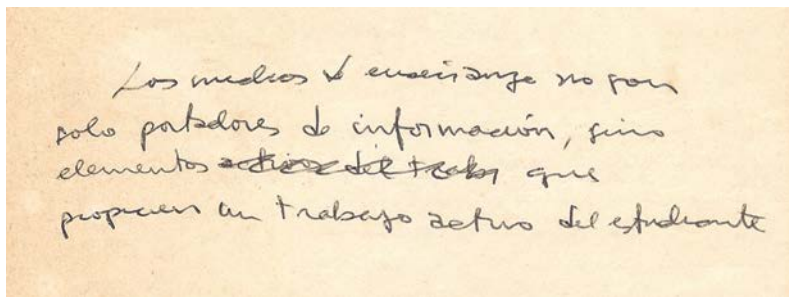 Los medios de enseñanza no son
solo portadores de información, sino
elementos activos del trabaj que
propicien un trabajo activo del estudiante